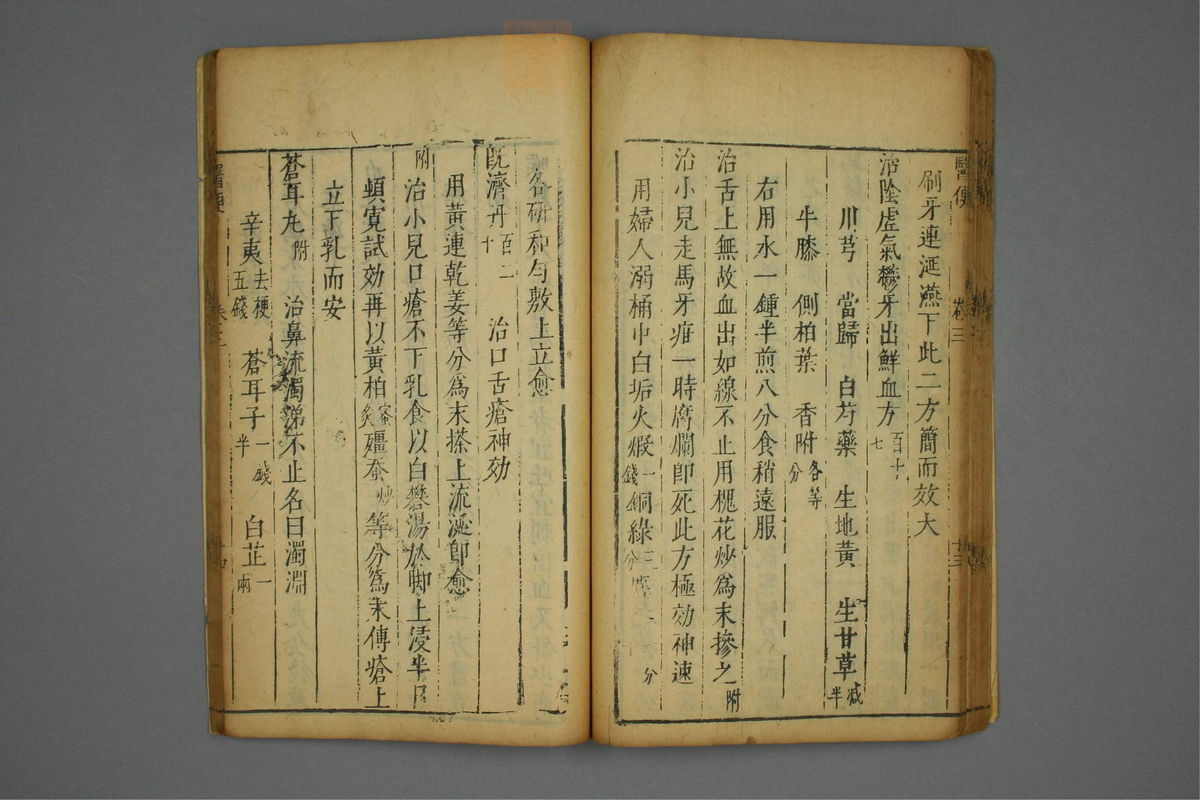 醫便
卷三
十三
刷牙連涎嚥下此二方簡而效大
治陰虛氣鬱牙出鮮血方百十七
川芎 當歸 白芍藥 生地黃 生甘草減半
牛膝 側柏葉 香附各等分
右用水一鍾半煎八分食稍遠服
治舌上無故血出如線不止用槐花炒為末摻之附
治小兒走馬牙疳一時腐爛卽死此方極効神速
用婦人溺桶中白垢火煅一錢銅綠三分
各研和勻敷上立愈
旣濟丹百二十 治口舌瘡神効
用黃連乾姜等分為末搽上流涎卽愈
附治小兒口瘡不下乳食以白礬湯於脚上浸半日
頓寬試効再以黃柏蜜炙殭蚕炒等分為末傅瘡上
立下乳而安
蒼耳丸附 治鼻流濁涕不止名曰濁淵
辛夷去梗五錢 蒼耳子一錢半 白芷一兩
醫便
卷三
十四